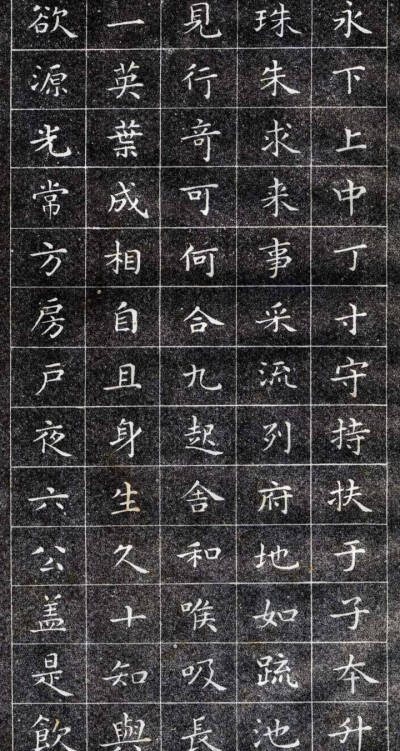 永下上中丁寸守持扶于子夲升
珠朱求来事采流列府地如䟽池
見行竒可何合九起舍和喉吸長
一英葉成相自且身生久十知與
欲源光常方房戸夜六公盖是飲